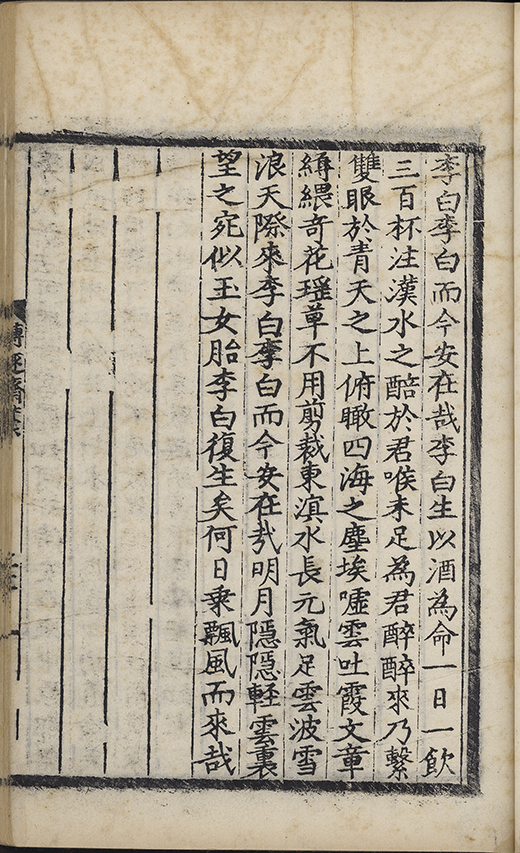 李白李白而今安在哉李白生以酒為命一日一飲
三百杯注漢水之醅於君喉未足為君醉醉來乃繫
雙眼於青天之上俯瞰四海之塵埃噓雲吐霞文章
縟縕奇花瑶草不用剪裁東溟水長元氣足雲波雪
浪天際來李白李白而今安在㢤明月隱隱軽雲裏
望之宛似玉女胎李白復生矣何日乘飄風而來哉